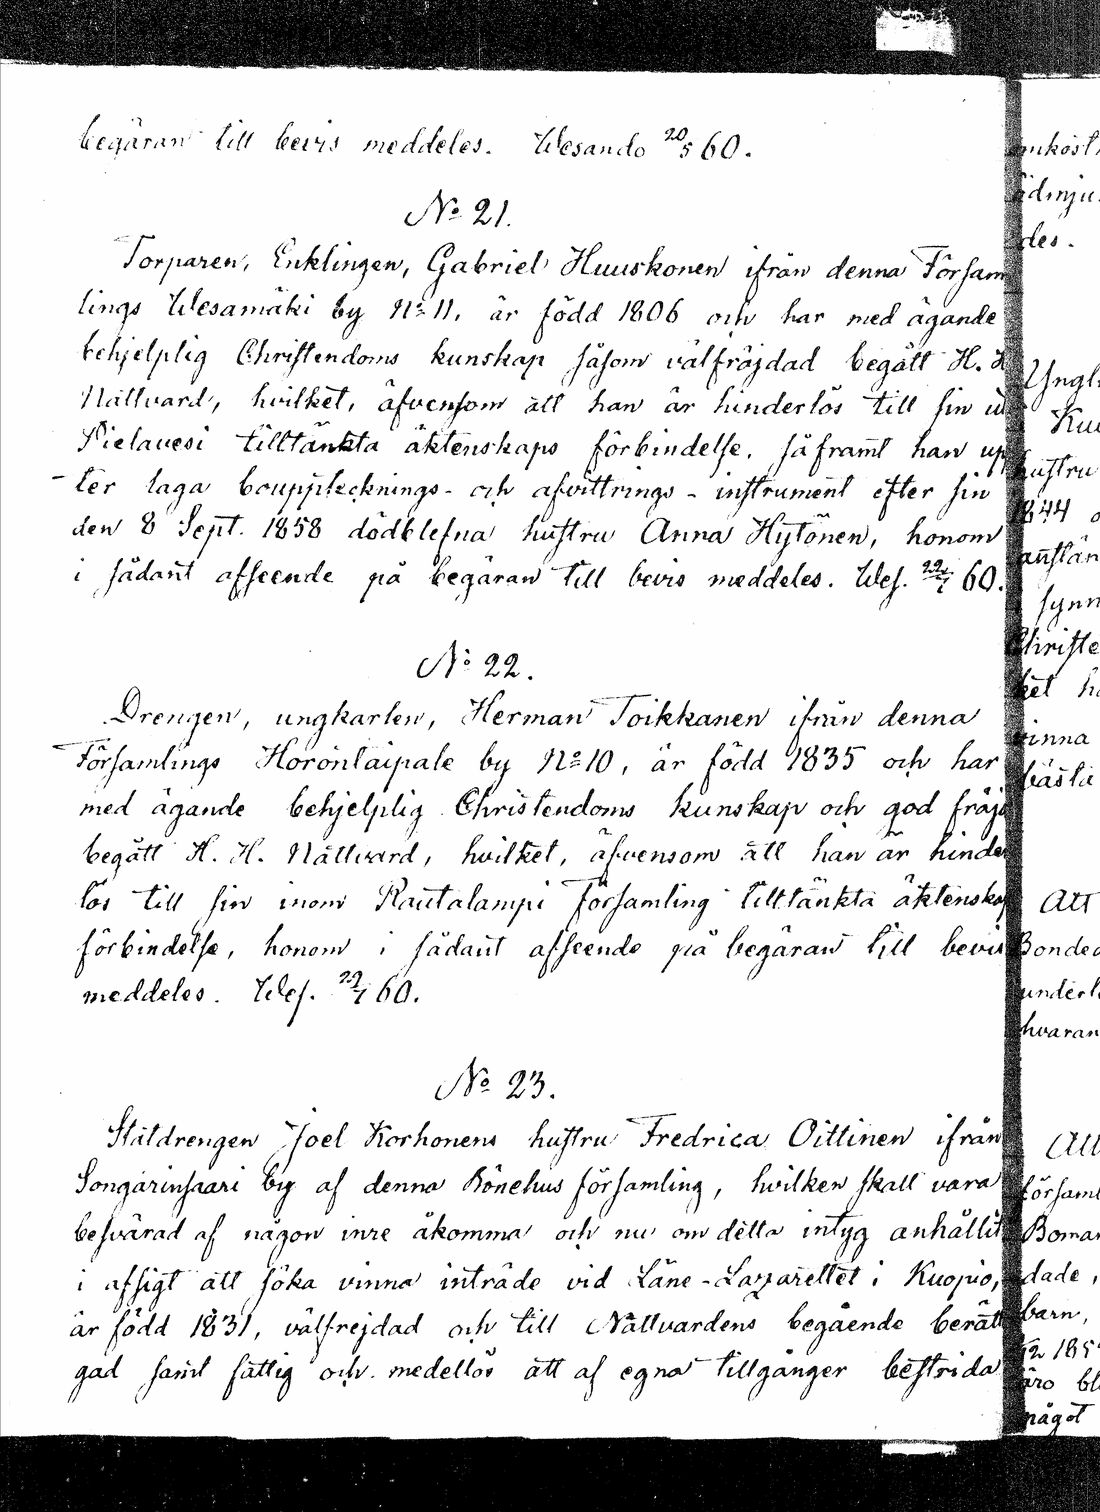 begäran till bevis meddeles. Wesando 20/5 60.
No 21.
Torparen, Enklingen, Gabriel Huuskonen ifrån denna Försam
lings Wesamäki by No 11, är född 1806 och har med ägande
behjelplig Christendoms kunskap såsom välfräjdad begått H. H
Nattvard, hvilket, äfvensom att han är hinderlös till sin i
Pielavesi tilltänkta äktenskaps förbindelse, såframt han up
-ter laga bouppteknings- och afvittrings-instrument efter sin
den 8 Sept. 1858 dödblefna hustru Anna Hytönen, honom
i sådant afseende på begäran till bevis meddeles. Wes. 22/7 60.
No 22.
Drengen, ungkarlen, Herman Toikkanen ifrån denna
Församlings Horontaipale by No 10, är född 1835 och har
med ägande behjelplig Christendoms kunskap och god fräjd
begått H. H. Nattvard, hvilket, äfvensom att han är hinder
lös till sin inom Rautalampi församling tilltänkta äktenskap
förbindelse, honom i sådant afseende på begäran till bevis
meddeles. Wes. 22/7 60.
No 23.
Statdrengen Joel Korhonens hustru Fredrica Oittinen ifrån
Songarinsaari by af denna Bönehus församling, hvilken skall vara
besvärad af någon inre åkomma och nu om detta intyg anhållit
i afsigt att söka vinna inträde vid Läne-Lazzarettet i Kuopio,
är född 1831, välfrejdad och till Nattvardens begående berätt
gad samt fattig och medellös att af egna tillgånger bestrida
omkost
ödmju
des.
Yngl
Kuu
hustru
1844
anstän
synn
Christe
ket ha
vinna
bästa
Att
Bonde
underl
hvaran
Att
församl
Boman
dade,
barn,
äro bl
något